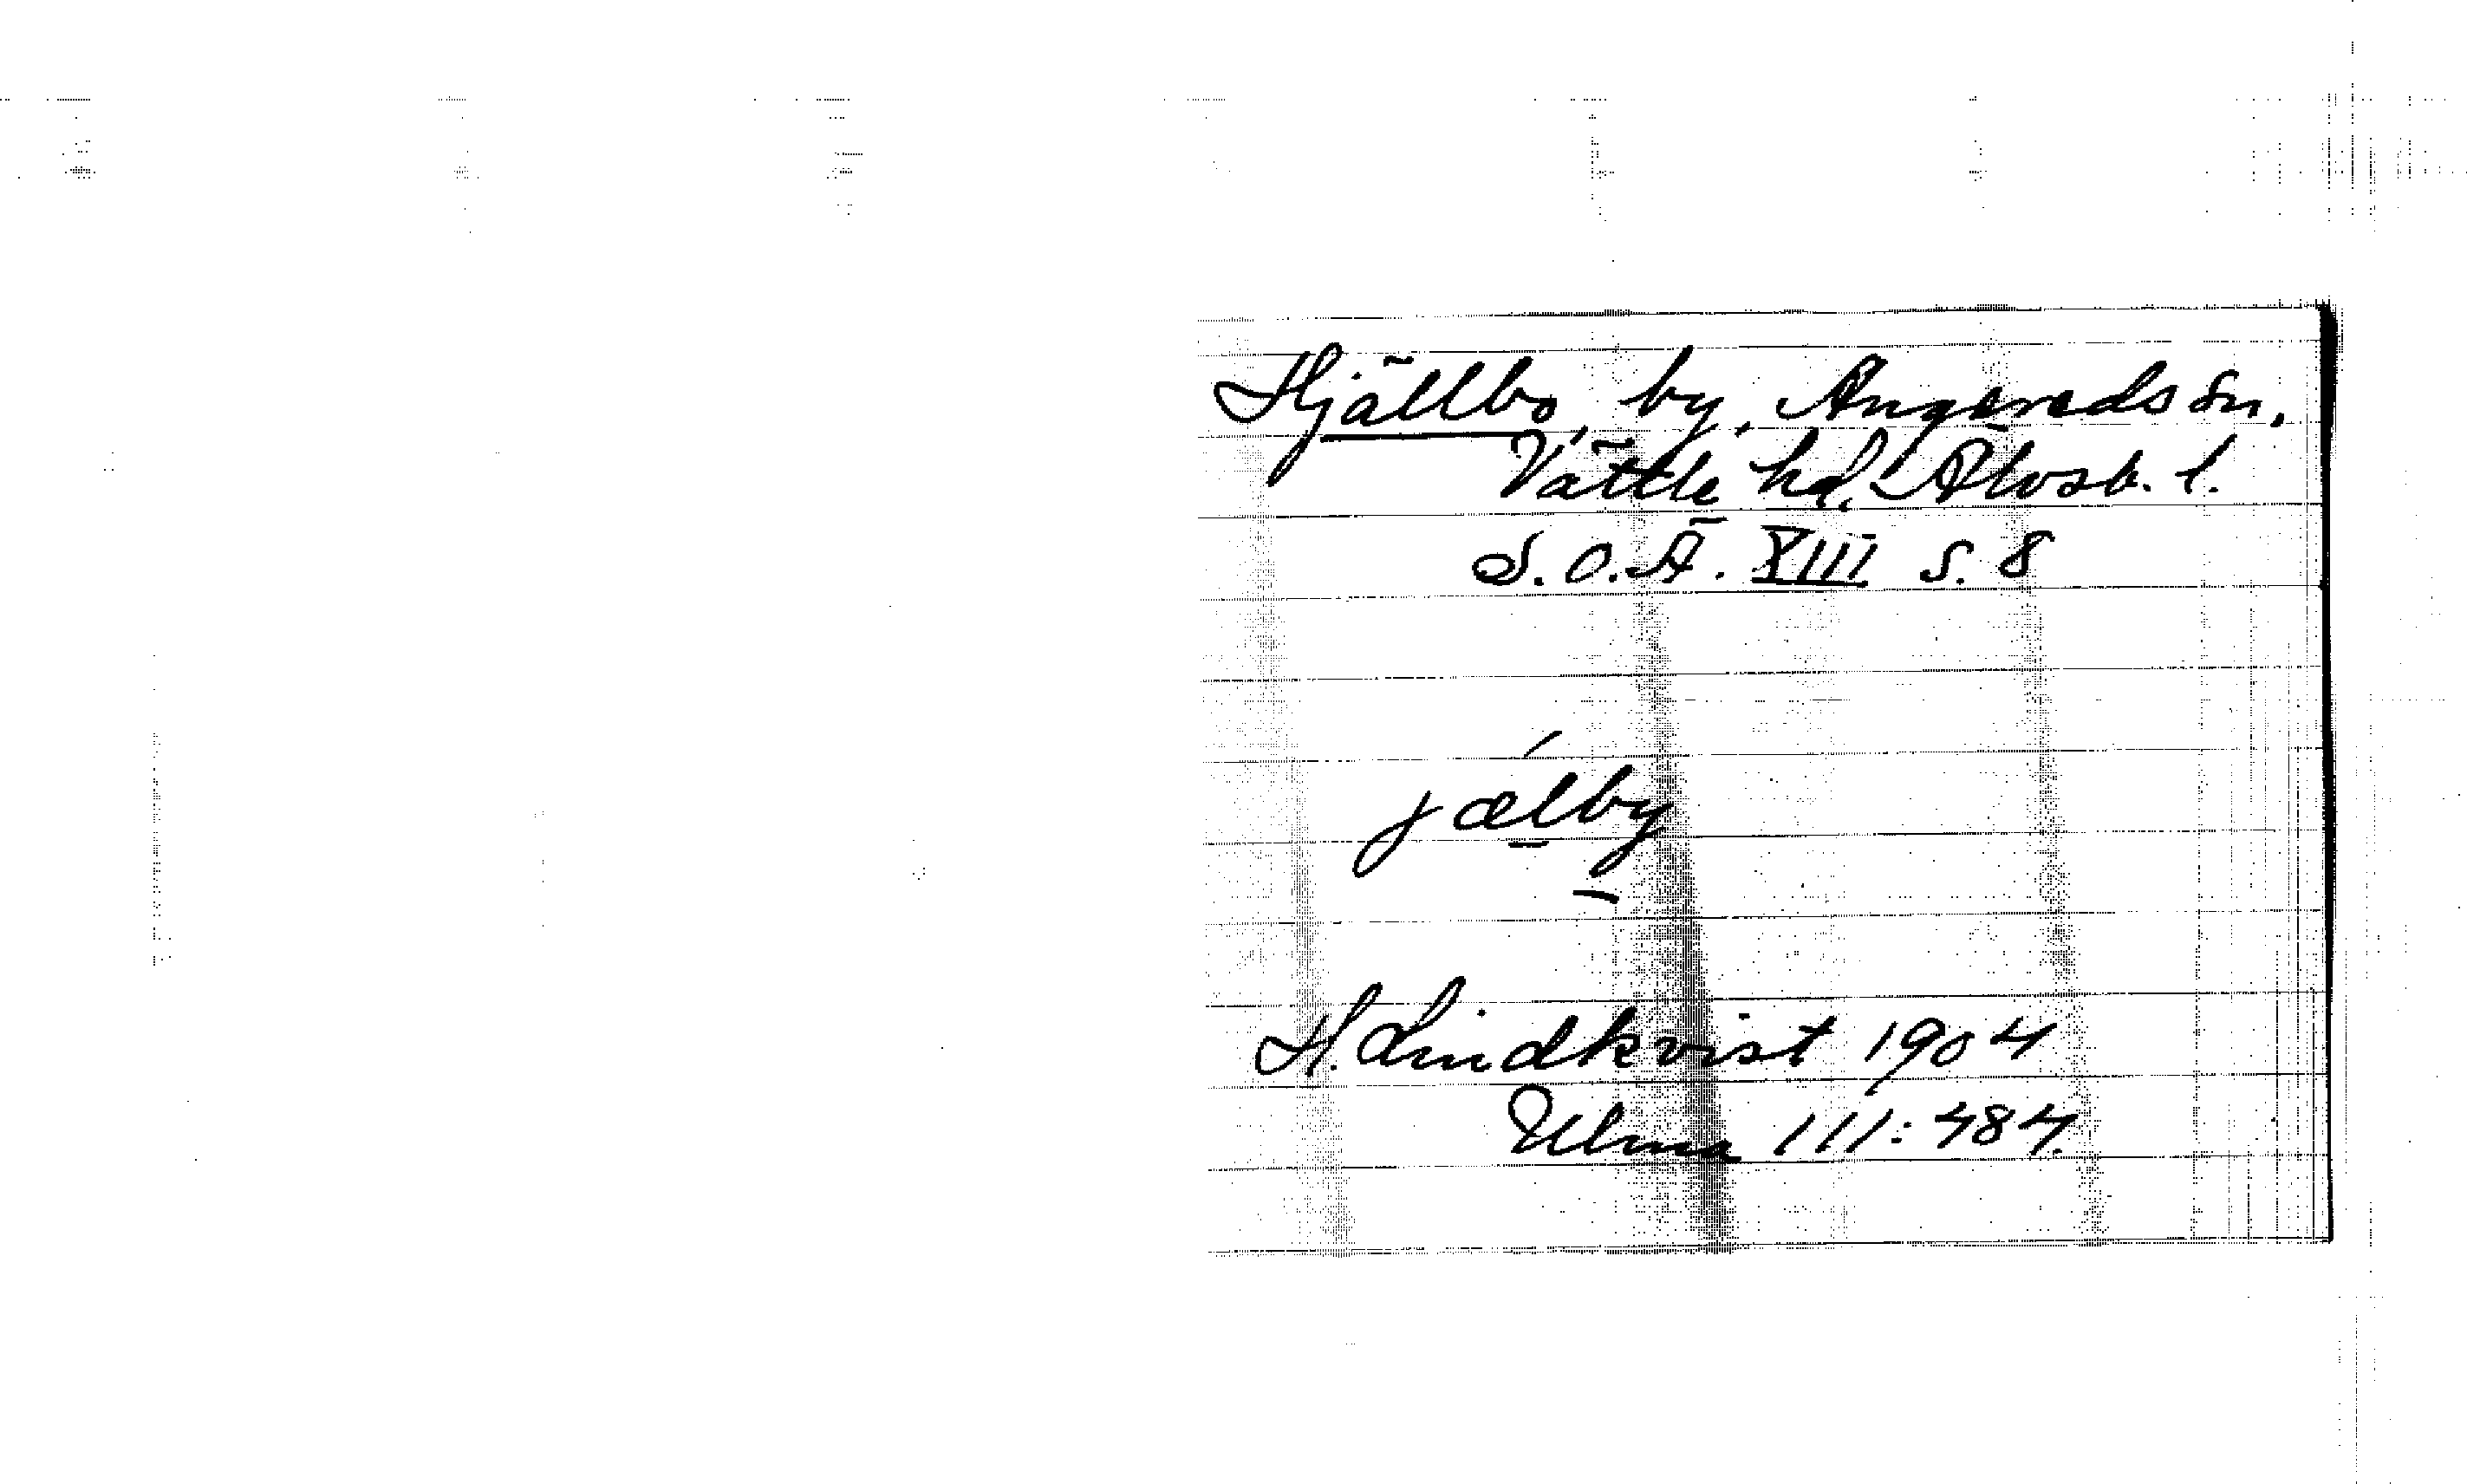 Hjällbo, by, Angereds sn,
Vättle hd. Älvsb. l.
S. O. Ä. XIII s. 8
jælby
H. Lindkvist 1904
Ulma 111:484.